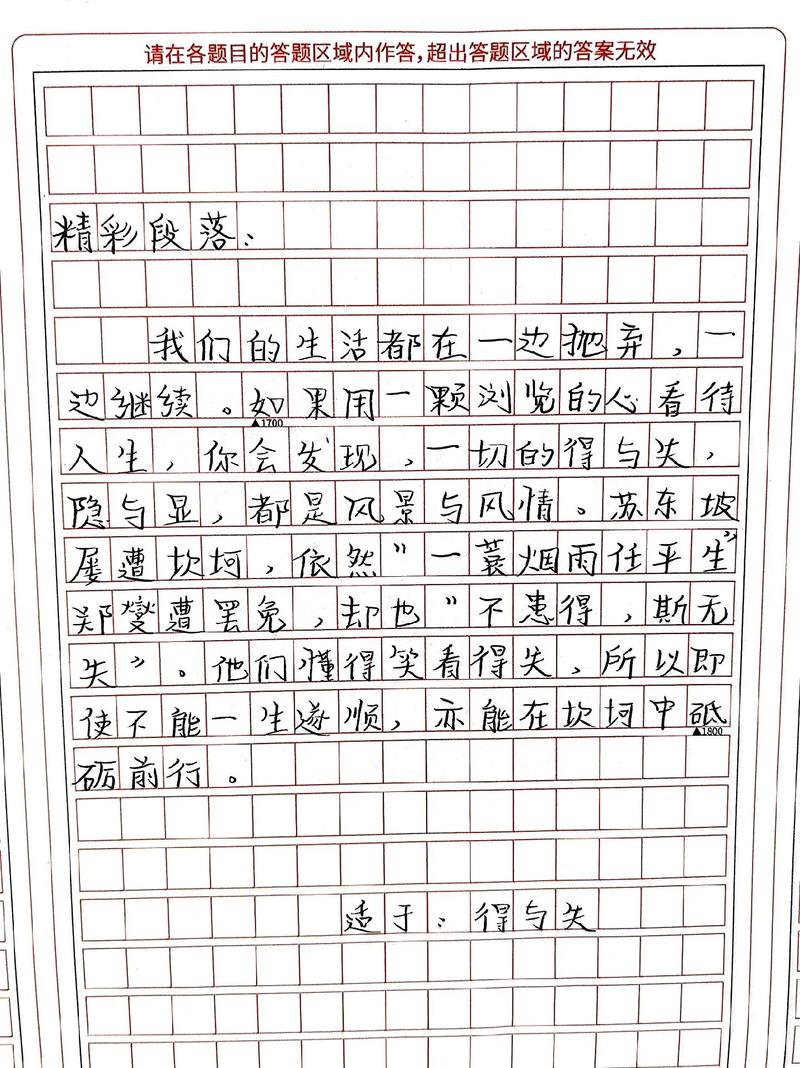 请在各题目的答题区域内作答,超出答题区域的答案无效
精彩段落：
我们的生活都在一边抛弃，一
边继续。如果用一颗浏览的心看待
▲1700
人生，你会发现，一切的得与失，
隐与显，都是风景与风情。苏东坡
屡遭坎坷，依然"一蓑烟雨任平生"
郑燮遭罢免，却也"不患得，斯无
失"。他们懂得笑看得失，所以即
使不能一生遂顺，亦能在坎坷中砥
▲1800
砺前行。
适于：得与失